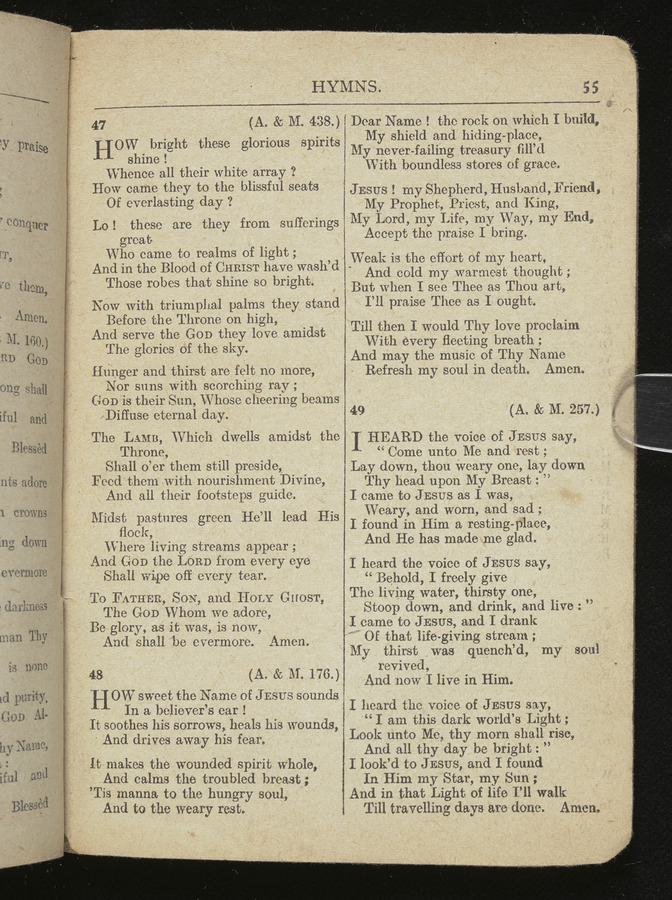 y praise
conquer
ve them,
Amen.
M. 160.)
RD GOD
ong shall
iful and
Blessèd
nts adore
crowns
ing down
evermore
darkness
man Thy
is none
nd purity,
GOD Al-
hy Name,
iful and
Blessèd
HYMNS. 55
47 (A. & M. 438.)
HOW bright these glorious spirits
shine !
Whence all their white array ?
How came they to the blissful seats
Of everlasting day ?
Lo ! these are they from sufferings
great
Who came to realms of light ;
And in the Blood of CHRIST have wash'd
Those robes that shine so bright.
Now with triumphal palms they stand
Before the Throne on high,
And serve the GOD they love amidst
The glories of the sky.
Hunger and thirst are felt no more,
Nor suns with scorching ray ;
GOD is their Sun, Whose cheering beams
Diffuse eternal day.
The LAMB, Which dwells amidst the
Throne,
Shall o'er them still preside,
Feed them with nourishment Divine,
And all their footsteps guide.
Midst pastures green He'll lead His
flock,
Where living streams appear ;
And GOD the LORD from every eye
Shall wipe off every tear.
To FATHER, SON, and HOLY GHOST,
The GOD Whom we adore,
Be glory, as it was, is now,
And shall be evermore. Amen.
48 (A. & M. 176.)
HOW sweet the Name of JESUS sounds
In a believer's ear !
It soothes his sorrows, heals his wounds,
And drives away his fear.
It makes the wounded spirit whole,
And calms the troubled breast ;
'Tis manna to the hungry soul,
And to the weary rest.
Dear Name ! the rock on which I build,
My shield and hiding-place,
My never-failing treasury fill'd
With boundless stores of grace.
JESUS ! my Shepherd, Husband, Friend,
My Prophet, Priest, and King,
My Lord, my Life, my Way, my End,
Accept the praise I bring.
Weak is the effort of my heart,
And cold my warmest thought ;
But when I see Thee as Thou art,
I'll praise Thee as I ought.
Till then I would Thy love proclaim
With every fleeting breath ;
And may the music of Thy Name
Refresh my soul in death. Amen.
49 (A. & M. 257.)
I HEARD the voice of JESUS say,
" Come unto Me and rest ;
Lay down, thou weary one, lay down
Thy head upon My Breast : "
I came to JESUS as I was,
Weary, and worn, and sad ;
I found in Him a resting-place,
And He has made me glad.
I heard the voice of JESUS say,
" Behold, I freely give
The living water, thirsty one,
Stoop down, and drink, and live : "
I came to JESUS, and I drank
Of that life-giving stream ;
My thirst was quench'd, my soul
revived,
And now I live in Him.
I heard the voice of JESUS say,
" I am this dark world's Light ;
Look unto Me, thy morn shall rise,
And all thy day be bright : "
I look'd to JESUS, and I found
In Him my Star, my Sun ;
And in that Light of life I'll walk
Till travelling days are done. Amen.